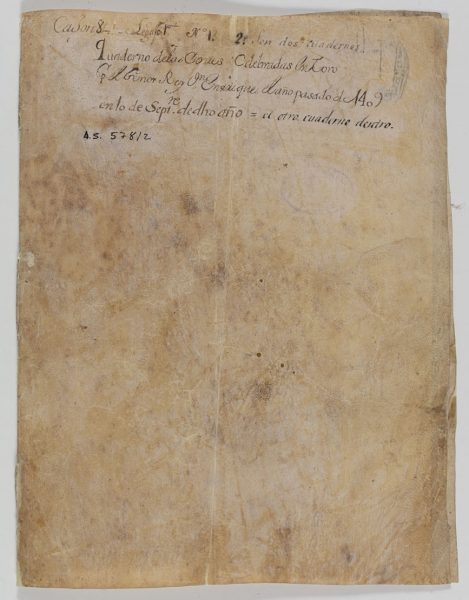 Caxon 8. Legajo 1º Nº 1. 2. son dos cuadernos.
Quaderno de las Cortes Celebradas En Toro
Pr. el Señor Rey Dn. Enrique el año pasado de 1409
en 10 de Septre. de dho año = el otro cuaderno dentro.
A.S. 578/2